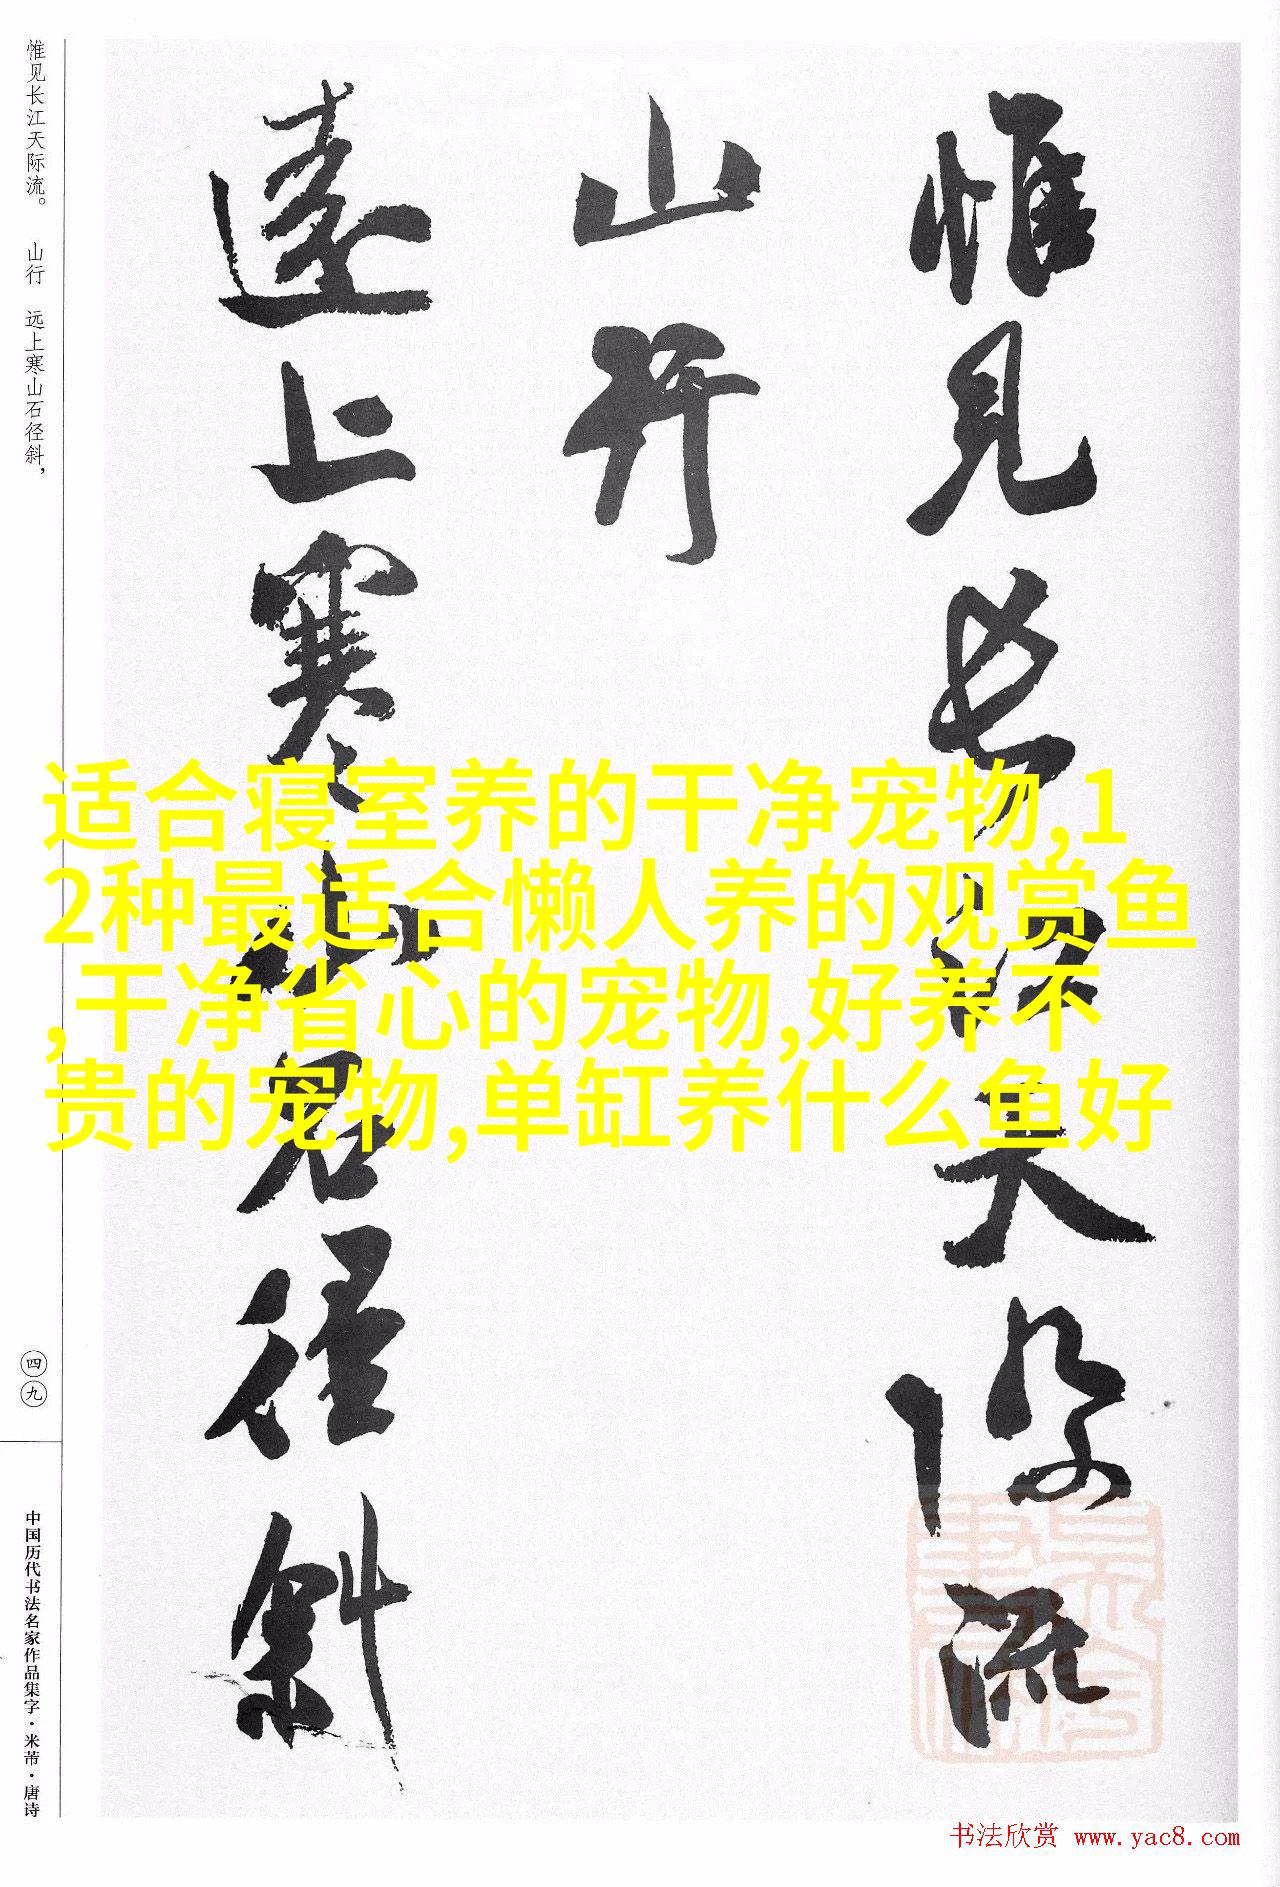 惟见长江天际流。 山行 远上寒山石径斜，
四九
中国历代书法名家作品集字·米芾·唐诗
惟見長江天際流
山行
遠上寒山石徑斜
适合寝室养的干净宠物,1
2种最适合懒人养的观赏鱼
,干净省心的宠物,好养不
贵的宠物,单缸养什么鱼好
书法欣赏 www.yac8.com